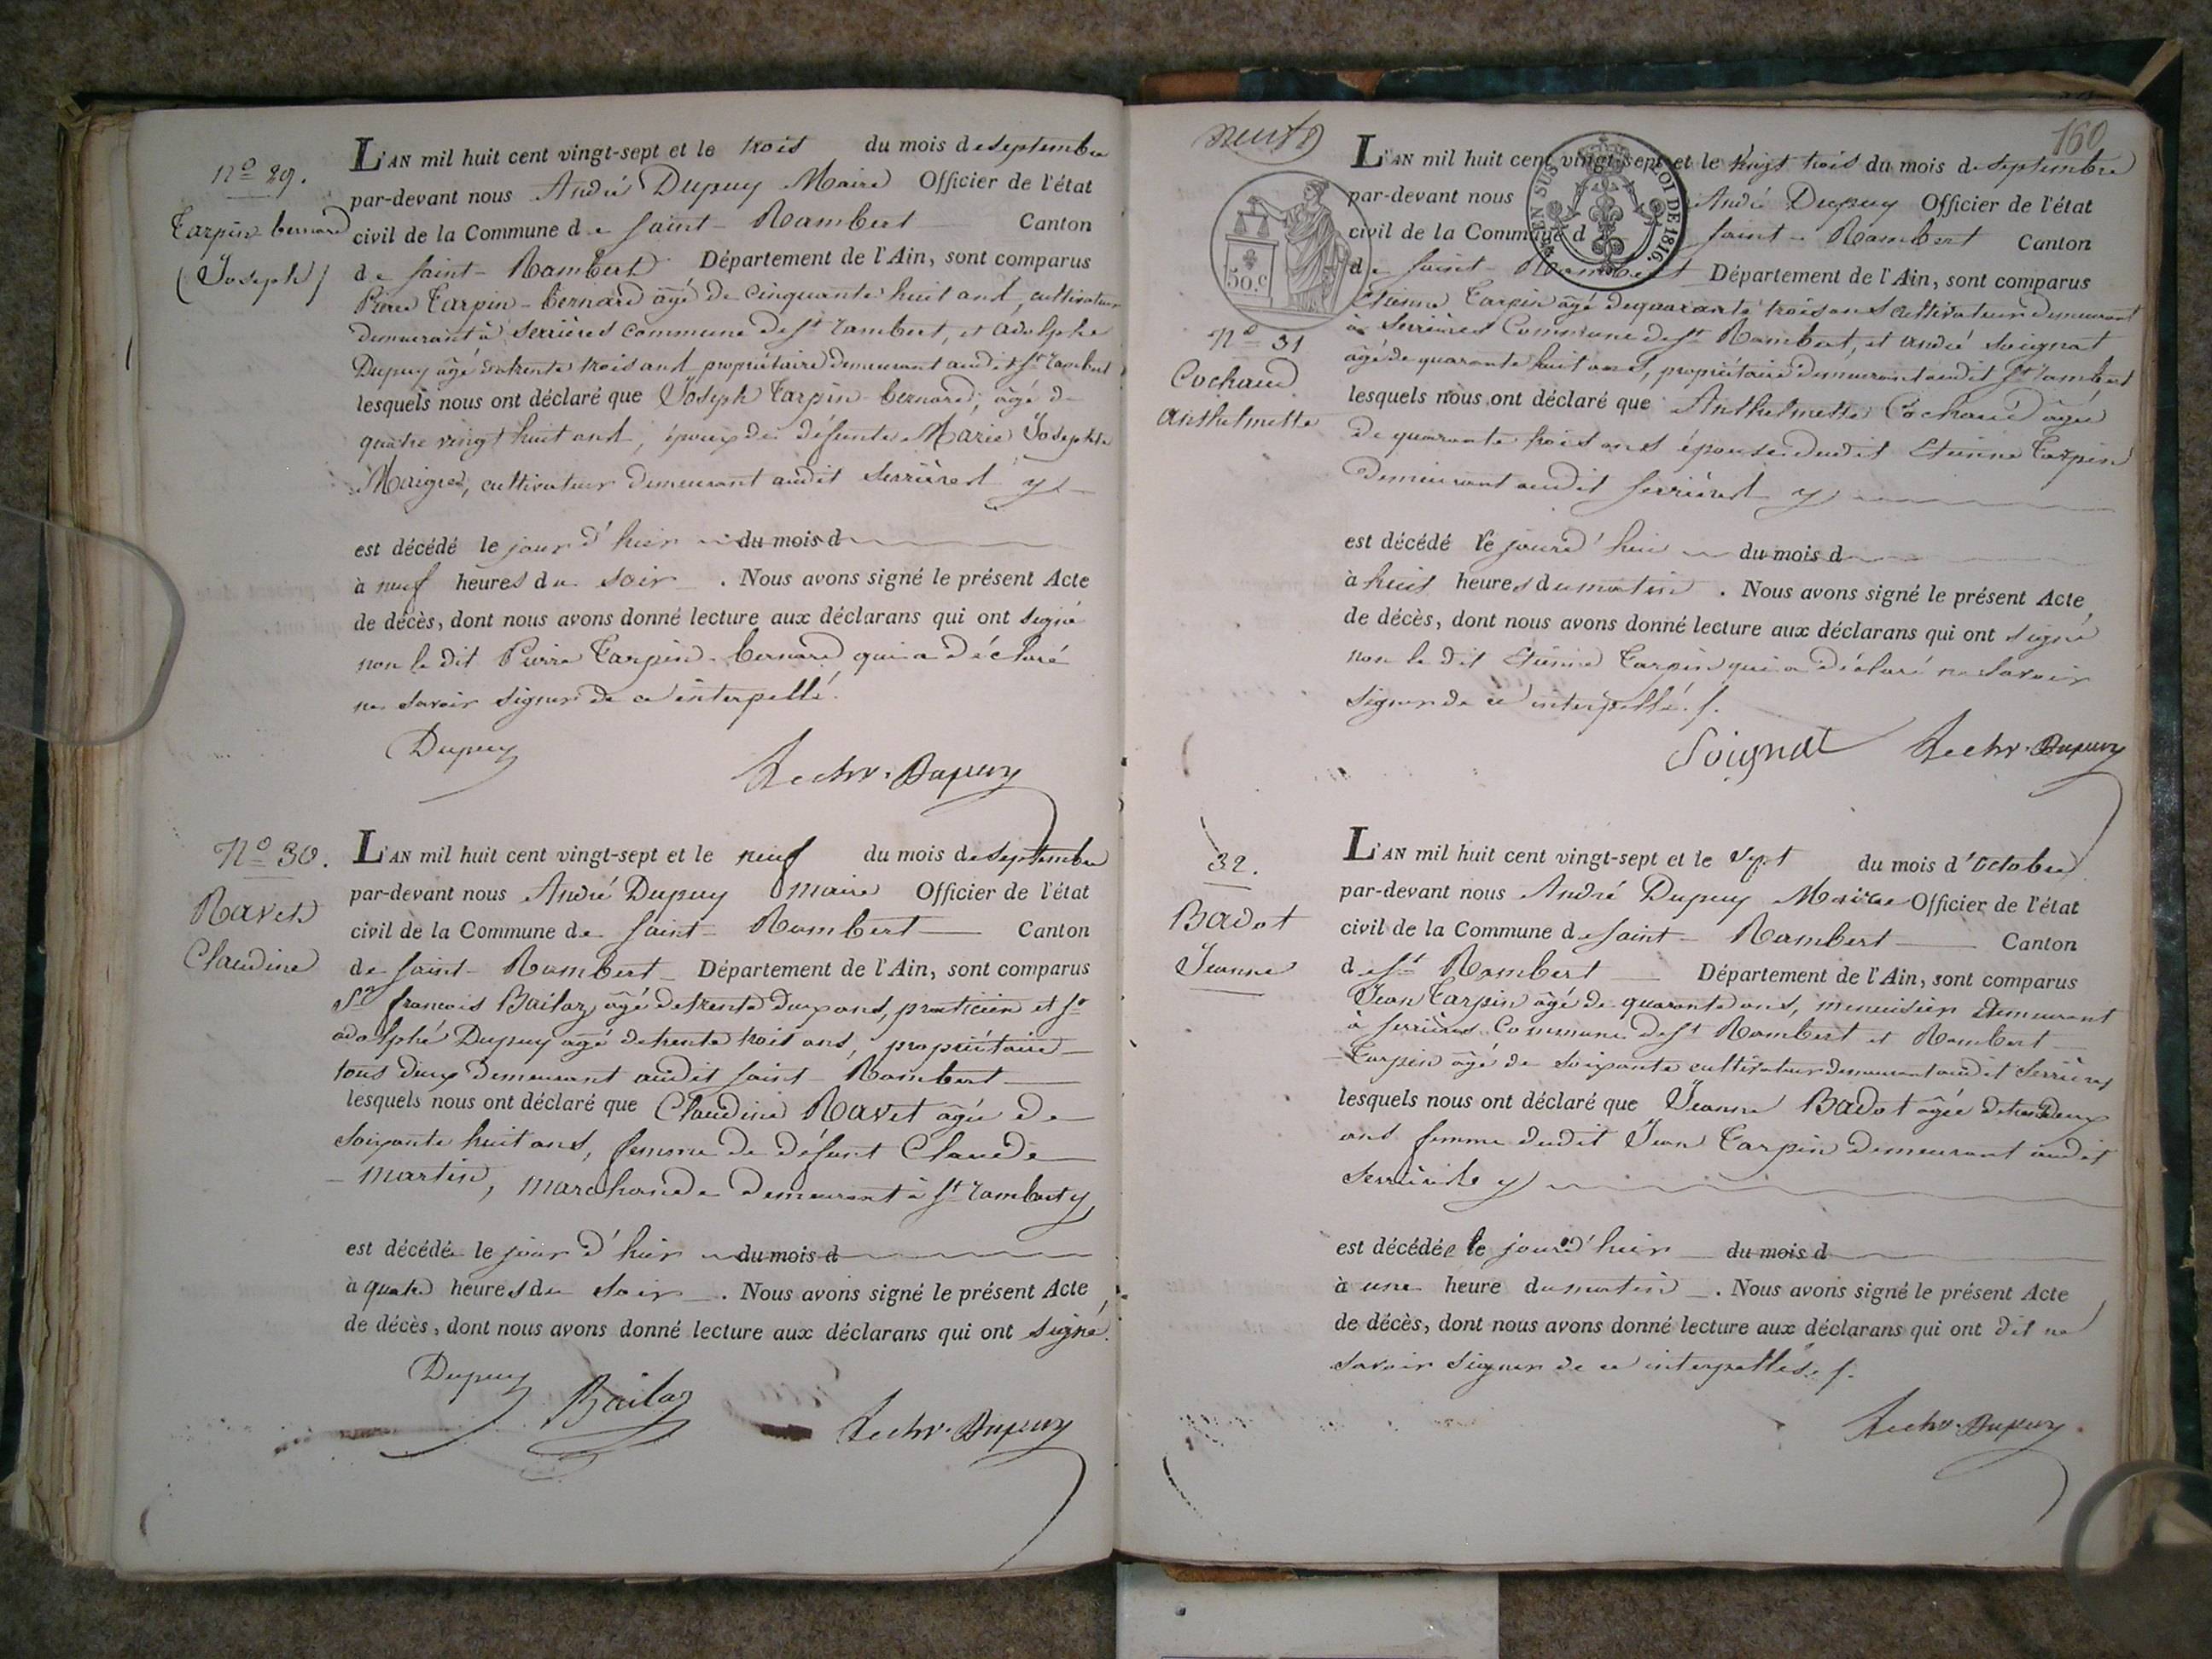 n.º 29.
Carpin bernard
(Joseph)
L'AN mil huit cent vingt-sept et le trois du mois de septembre
par-devant nous André Dupuy Maire Officier de l'état
civil de la Commune de Saint-Rambert Canton
de Saint-Rambert Département de l'Ain, sont comparus
Pierre Carpin-bernard âgé de cinquante huit ans, cultivateur
demeurant à Serrières commune de St rambert, et adolphe
Dupuy âgé de trente trois ans propriétaire demeurant audit St rambert
lesquels nous ont déclaré que Joseph Carpin-bernard, âgé de
quatre vingt huit ans, époux de défunte Marie Josephte
Maigre, cultivateur demeurant audit Serrières y
est décédé le jour d'hier du mois d
à neuf heures du soir. Nous avons signé le présent Acte
de décès, dont nous avons donné lecture aux déclarans qui ont signé
non le dit Pierre Carpin-bernard qui a déclaré
ne savoir signer de ce interpellé.
Dupuy
Dupuy
N.º 30.
Ravet
Claudine
L'AN mil huit cent vingt-sept et le neuf du mois de septembre
par-devant nous André Dupuy maire Officier de l'état
civil de la Commune de Saint-Rambert Canton
de Saint-Rambert Département de l'Ain, sont comparus
Sr francois Bailaz âgé de trente deux ans, praticien et Sr
adolphe Dupuy âgé de trente trois ans, propriétaire
tous deux demeurant audit Saint-Rambert
lesquels nous ont déclaré que Claudine Ravet âgée de
soixante huit ans, femme de défunt Claude
martin, marchande demeurant à St rambert y
est décédée le jour d'hier du mois d
à quatre heures du soir. Nous avons signé le présent Acte
de décès, dont nous avons donné lecture aux déclarans qui ont signé.
Dupuy
Bailaz
Dupuy
neuf
160
TIMBRE EN SUS
LOI DE 1816.
50.c
N.º 31
Cochand
anthelmette
L'AN mil huit cent vingt-sept et le vingt trois du mois de septembre
par-devant nous André Dupuy Officier de l'état
civil de la Commune d Saint-Rambert Canton
de Saint-Rambert Département de l'Ain, sont comparus
Etienne Carpin âgé de quarante trois ans cultivateur demeurant
à Serrières Commune de St Rambert, et andré Soignat
âgé de quarante huit ans, propriétaire demeurant audit St rambert
lesquels nous ont déclaré que Anthelmette Cochand âgée
de quarante trois ans épouse dudit Etienne Carpin
demeurant audit Serrières y
est décédé le jourd'hui du mois d
à huit heures du matin. Nous avons signé le présent Acte
de décès, dont nous avons donné lecture aux déclarans qui ont signé
non le dit Etienne Carpin qui a déclaré ne savoir
signer de ce interpellé.
Soignat
Dupuy
32.
Badot
Jeanne
L'AN mil huit cent vingt-sept et le sept du mois d'octobre
par-devant nous André Dupuy Maire Officier de l'état
civil de la Commune de Saint-Rambert Canton
de St Rambert Département de l'Ain, sont comparus
Jean Carpin âgé de quarante ans, menuisier demeurant
à Serrières Commune de St Rambert et Rambert
Carpin âgé de soixante cultivateur demeurant audit Serrières
lesquels nous ont déclaré que Jeanne Badot âgée de trente deux
ans femme dudit Jean Carpin demeurant audit
Serrières y
est décédée le jour d'hier du mois d
à une heure du matin. Nous avons signé le présent Acte
de décès, dont nous avons donné lecture aux déclarans qui ont dit ne
savoir signer de ce interpellés.
Dupuy